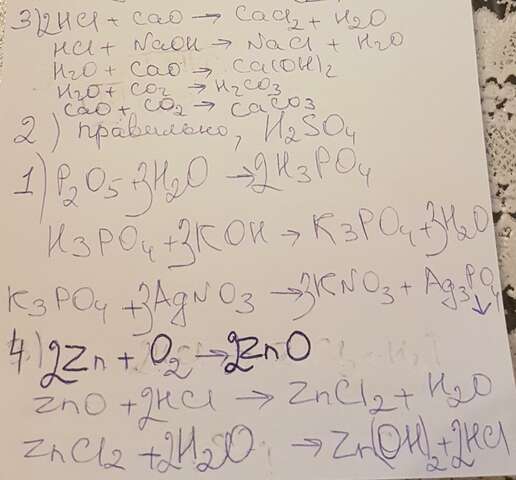 3) 2HCl + CaO → CaCl2 + H2O
HCl + NaOH → NaCl + H2O
H2O + CaO → Ca(OH)2
H2O + CO2 → H2CO3
CaO + CO2 → CaCO3
2) правильно, H2SO4
1) P2O5 + 3H2O → 2H3PO4
H3PO4 + 3KOH → K3PO4 + 3H2O
K3PO4 + 3AgNO3 → 3KNO3 + Ag3PO4↓
4.) 2Zn + O2 → 2ZnO
ZnO + 2HCl → ZnCl2 + H2O
ZnCl2 + 2H2O → Zn(OH)2 + 2HCl